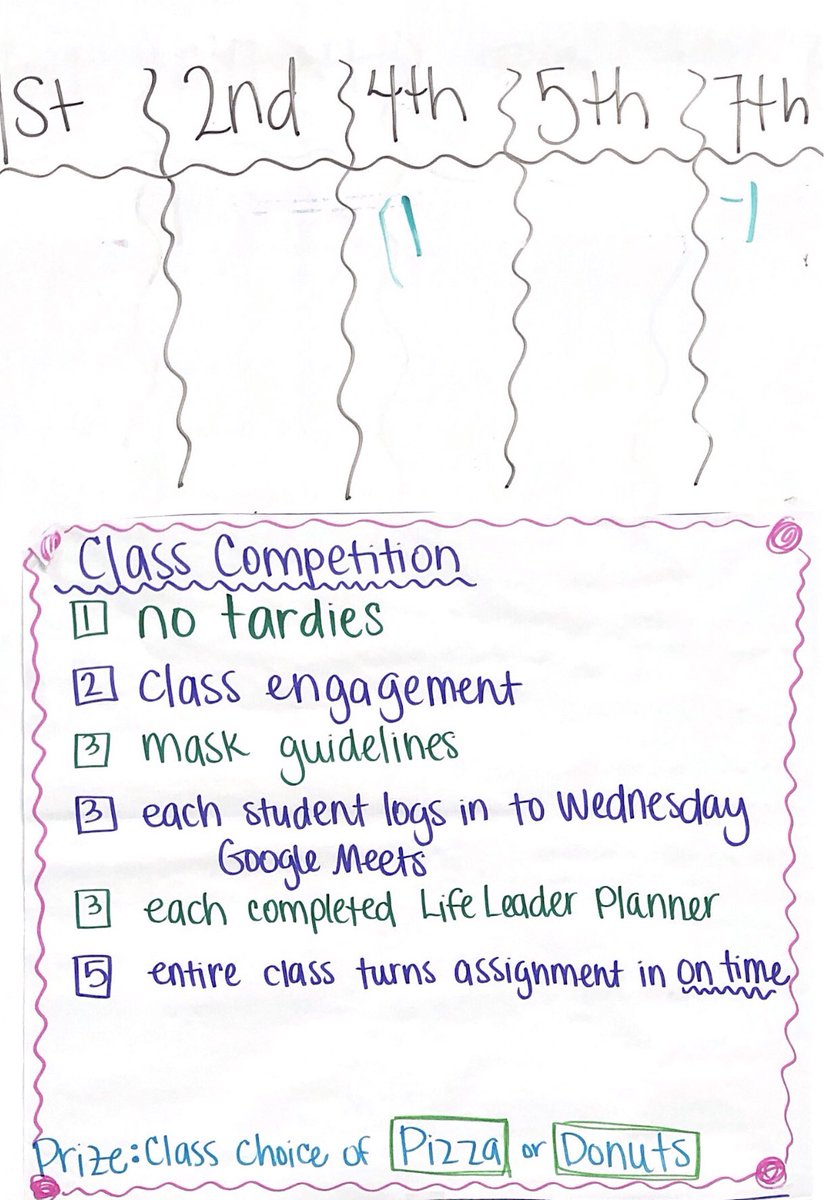 1st 2nd 4th 5th 7th
1 -1
Class Competition
1 no tardies
2 class engagement
3 mask guidelines
3 each student logs in to Wednesday
Google Meets
3 each completed Life Leader Planner
5 entire class turns assignment in on time
Prize: Class choice of Pizza or Donuts